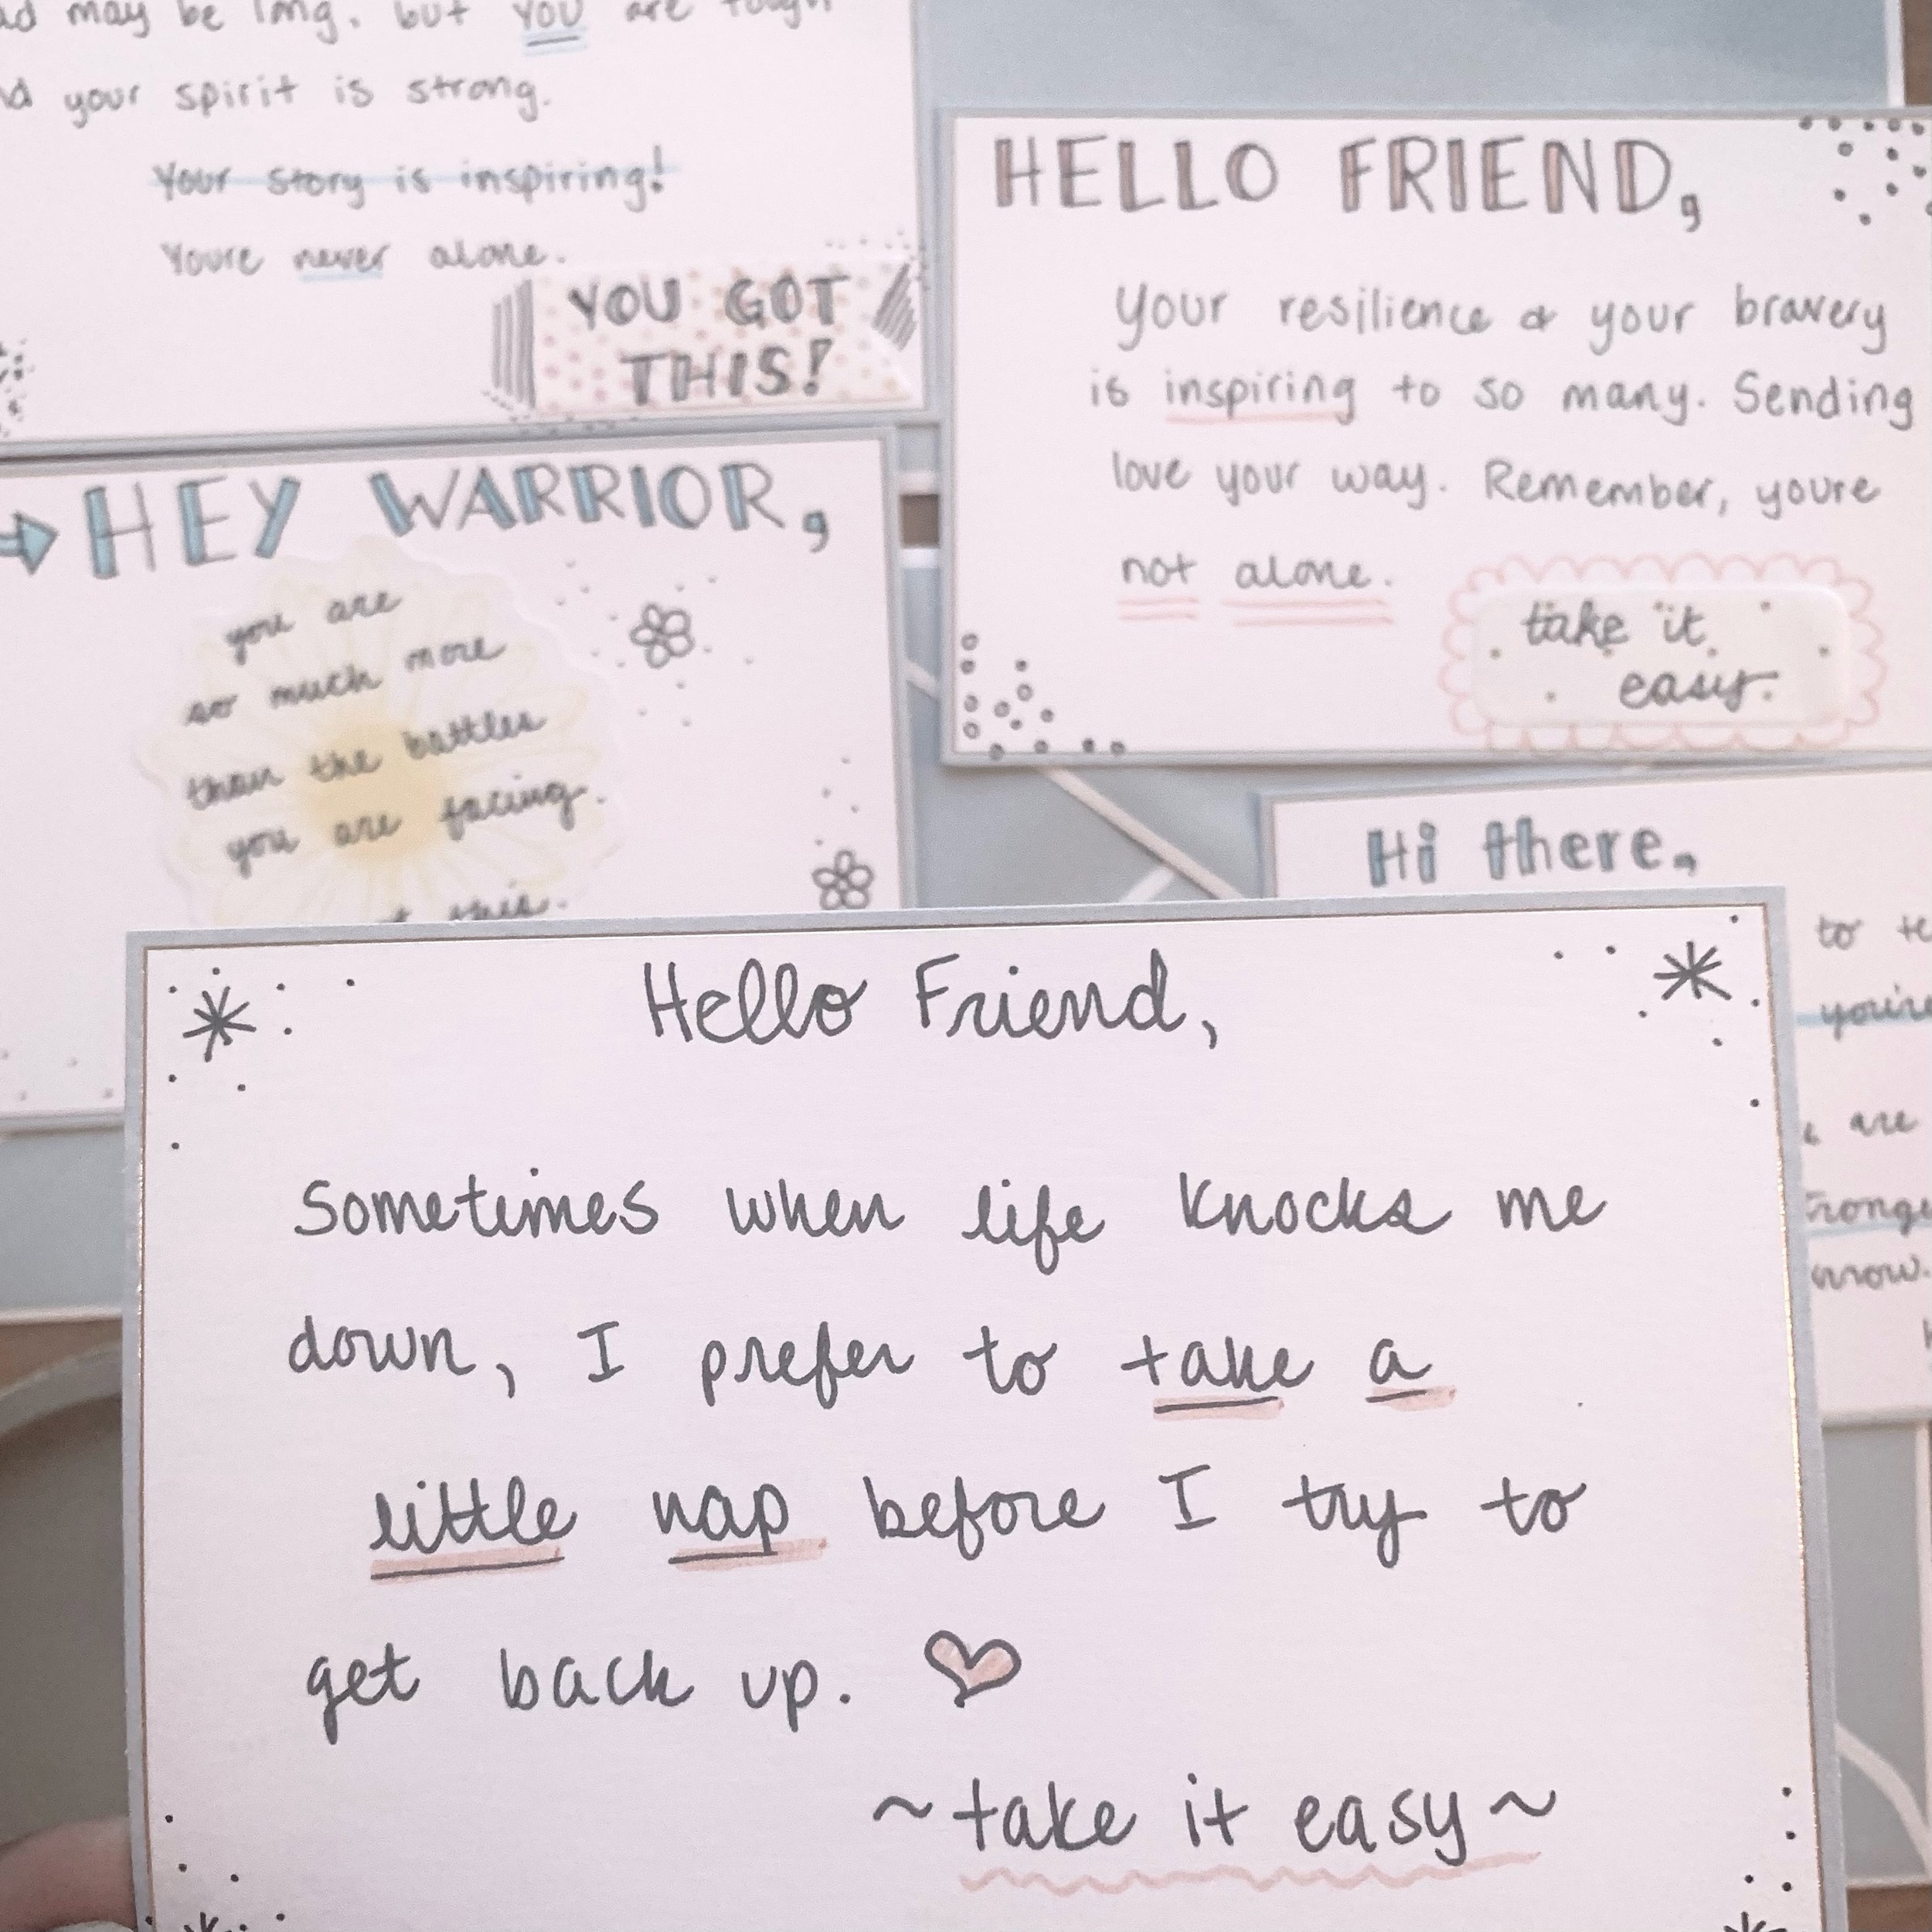 may be long. but you are tough
your spirit is strong.
Your story is inspiring!
Youre never alone.
YOU GOT
THIS!
HELLO FRIEND,
Your resilience & your bravery
is inspiring to so many. Sending
love your way. Remember, youre
not alone.
take it
easy.
HEY WARRIOR,
you are
so much more
than the battles
you are facing.
this.
Hi there,
to
you're
are
Hello Friend,
Sometimes when life knocks me
down, I prefer to take a
little nap before I try to
get back up.
~take it easy~